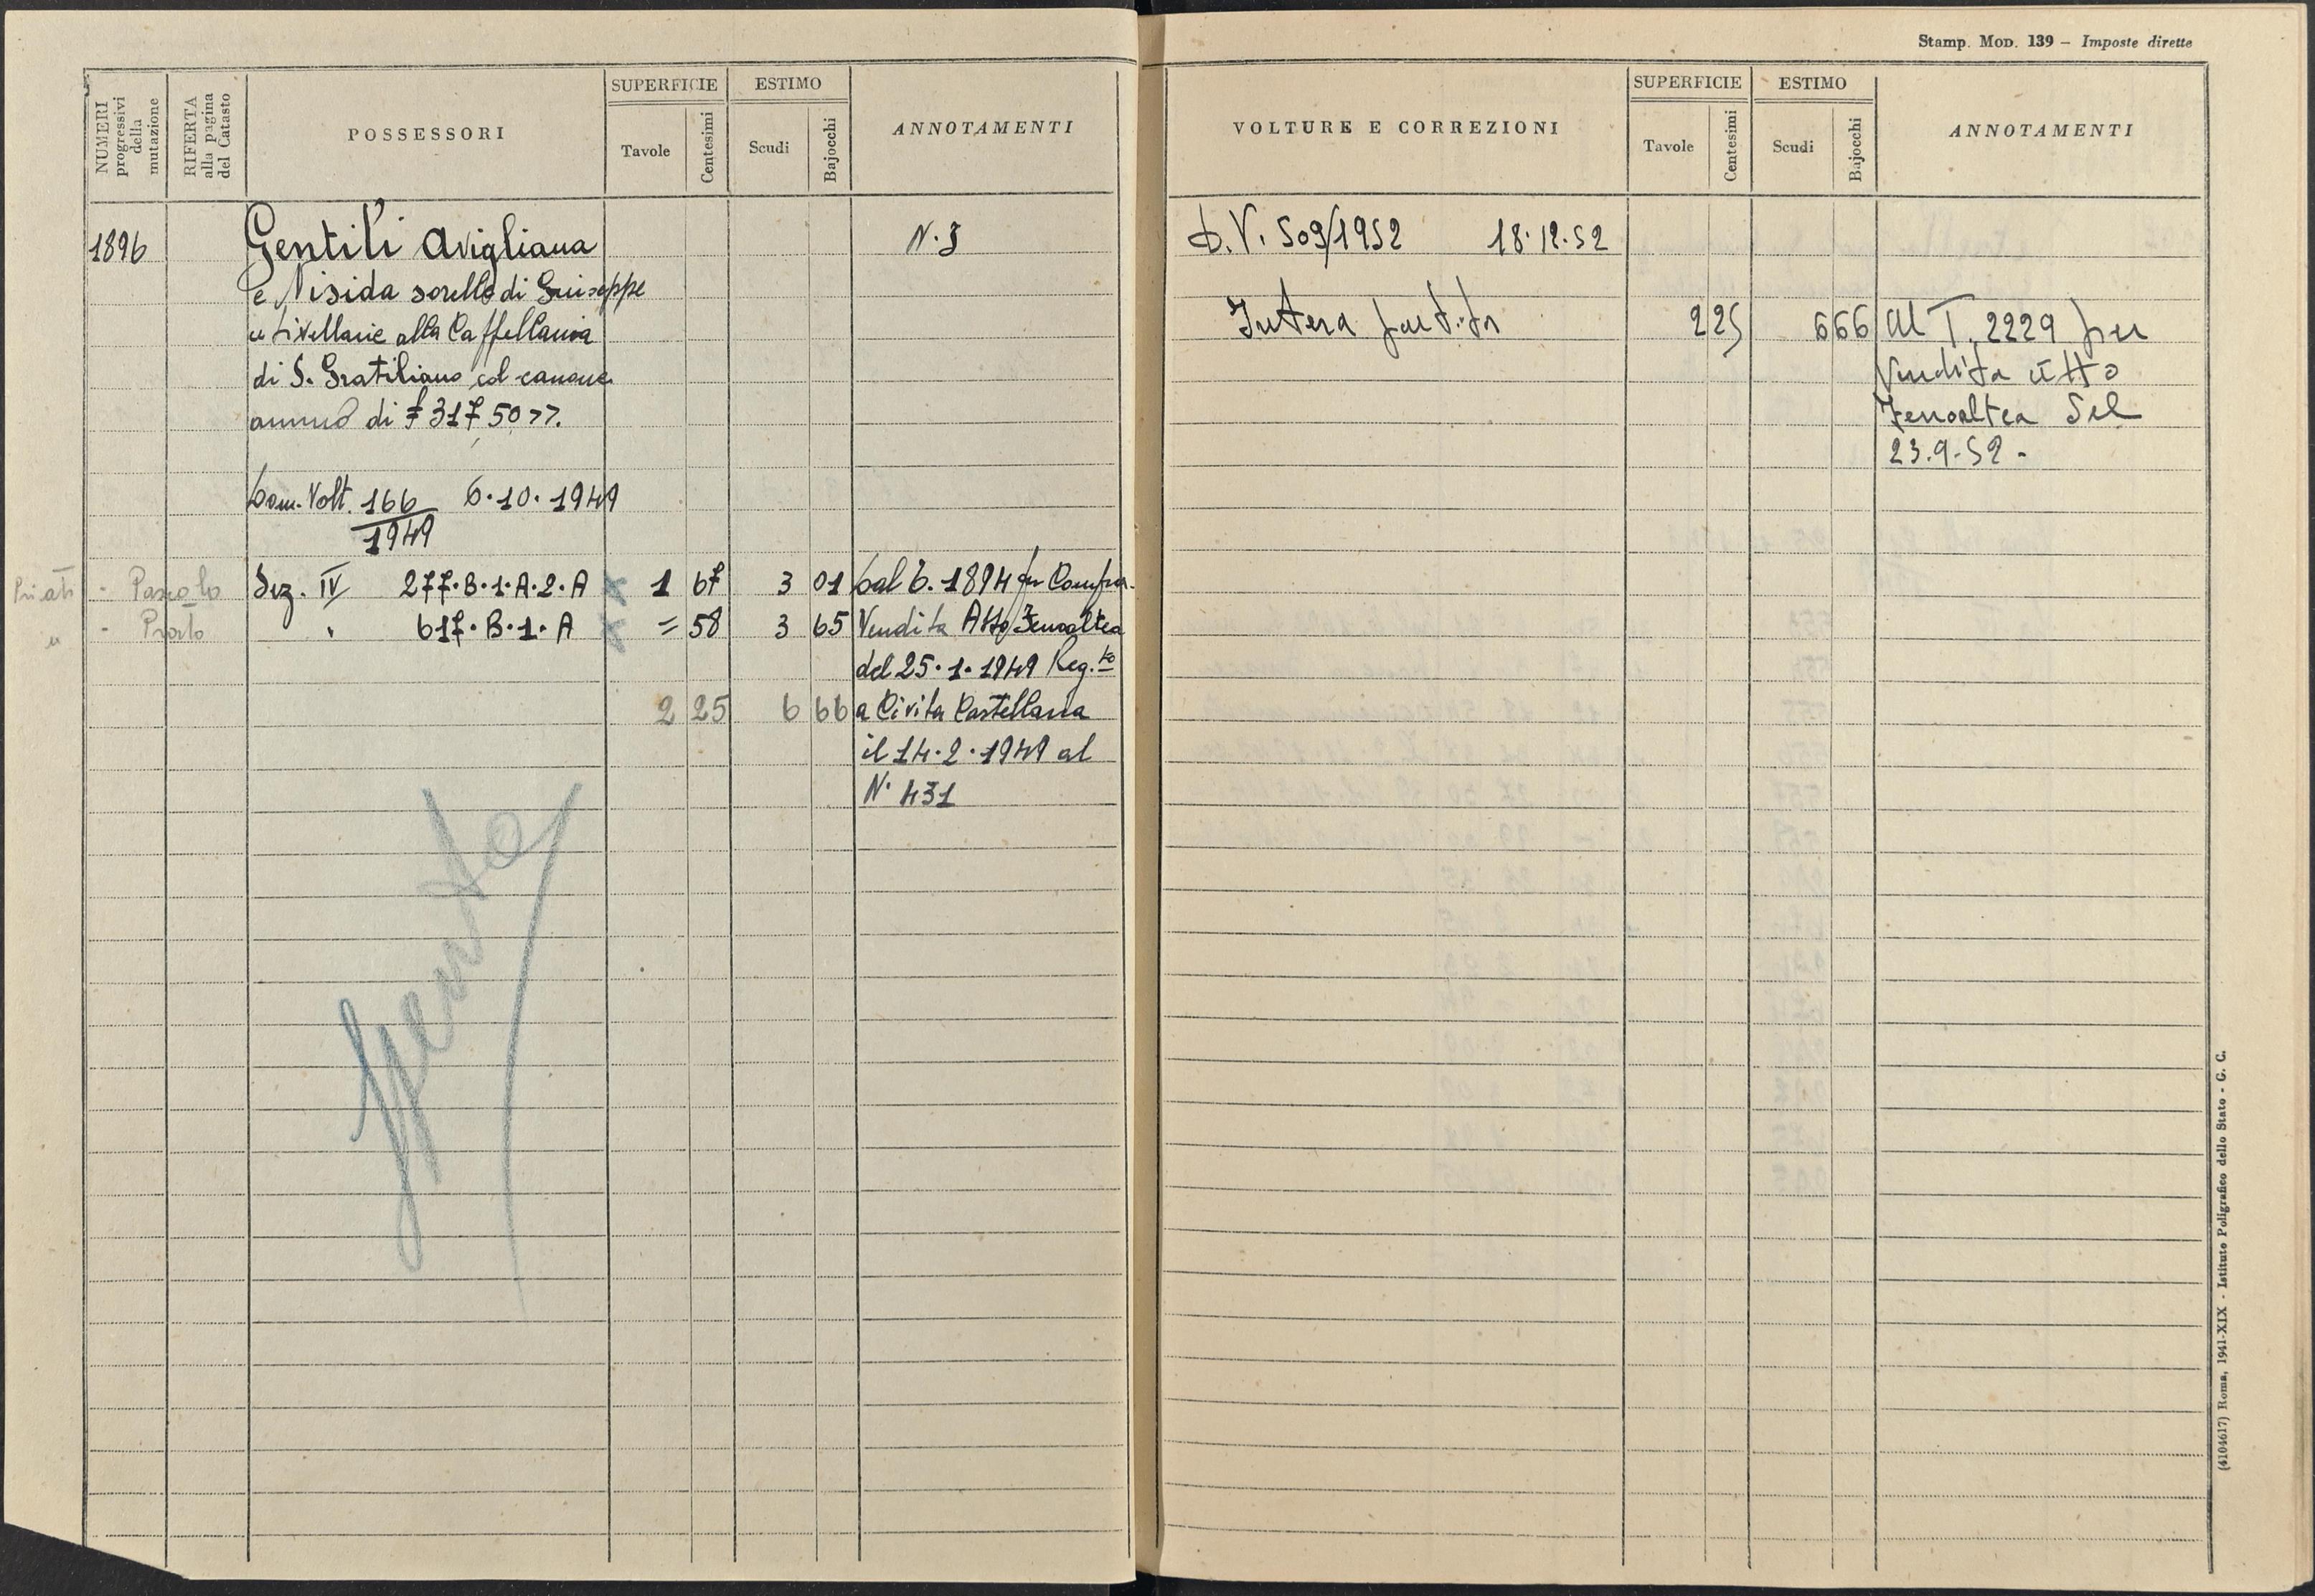 NUMERI progressivi della mutazione
RIFERTA alla pagina del Catasto
POSSESSORI
SUPERFICIE
Tavole
Centesimi
ESTIMO
Scudi
Bajocchi
ANNOTAMENTI
1896
Gentili Avigliana
N. 3
e Nisida sorelle di Giuseppe
e Livellarie alla Cappellania
di S. Gratiliano col canone
annuo di £ 317,50 >>.
Dom. Volt. 166/1949 6.10.1949
Privati - Pascolo Sez. IV 277.B.1.A.2.A 1 67 3 01 Dal 6. 1894 per Compra-
" - Prato " 617.B.1.A = 58 3 65 Vendita Atto Fenoaltea
del 25.1.1949 Reg.to
2 25 6 66 a Civita Castellana
il 14.2.1949 al
N. 431
Spento
Stamp. Mod. 139 – Imposte dirette
VOLTURE E CORREZIONI
SUPERFICIE
Tavole
Centesimi
ESTIMO
Scudi
Bajocchi
ANNOTAMENTI
D.V. 509/1952 18.12.52
Intera partita 2 25 6 66 Al T. 2229 per
Vendita atto
Fenoaltea del
23.9.52.
(4104617) Roma, 1941-XIX - Istituto Poligrafico dello Stato - G. C.